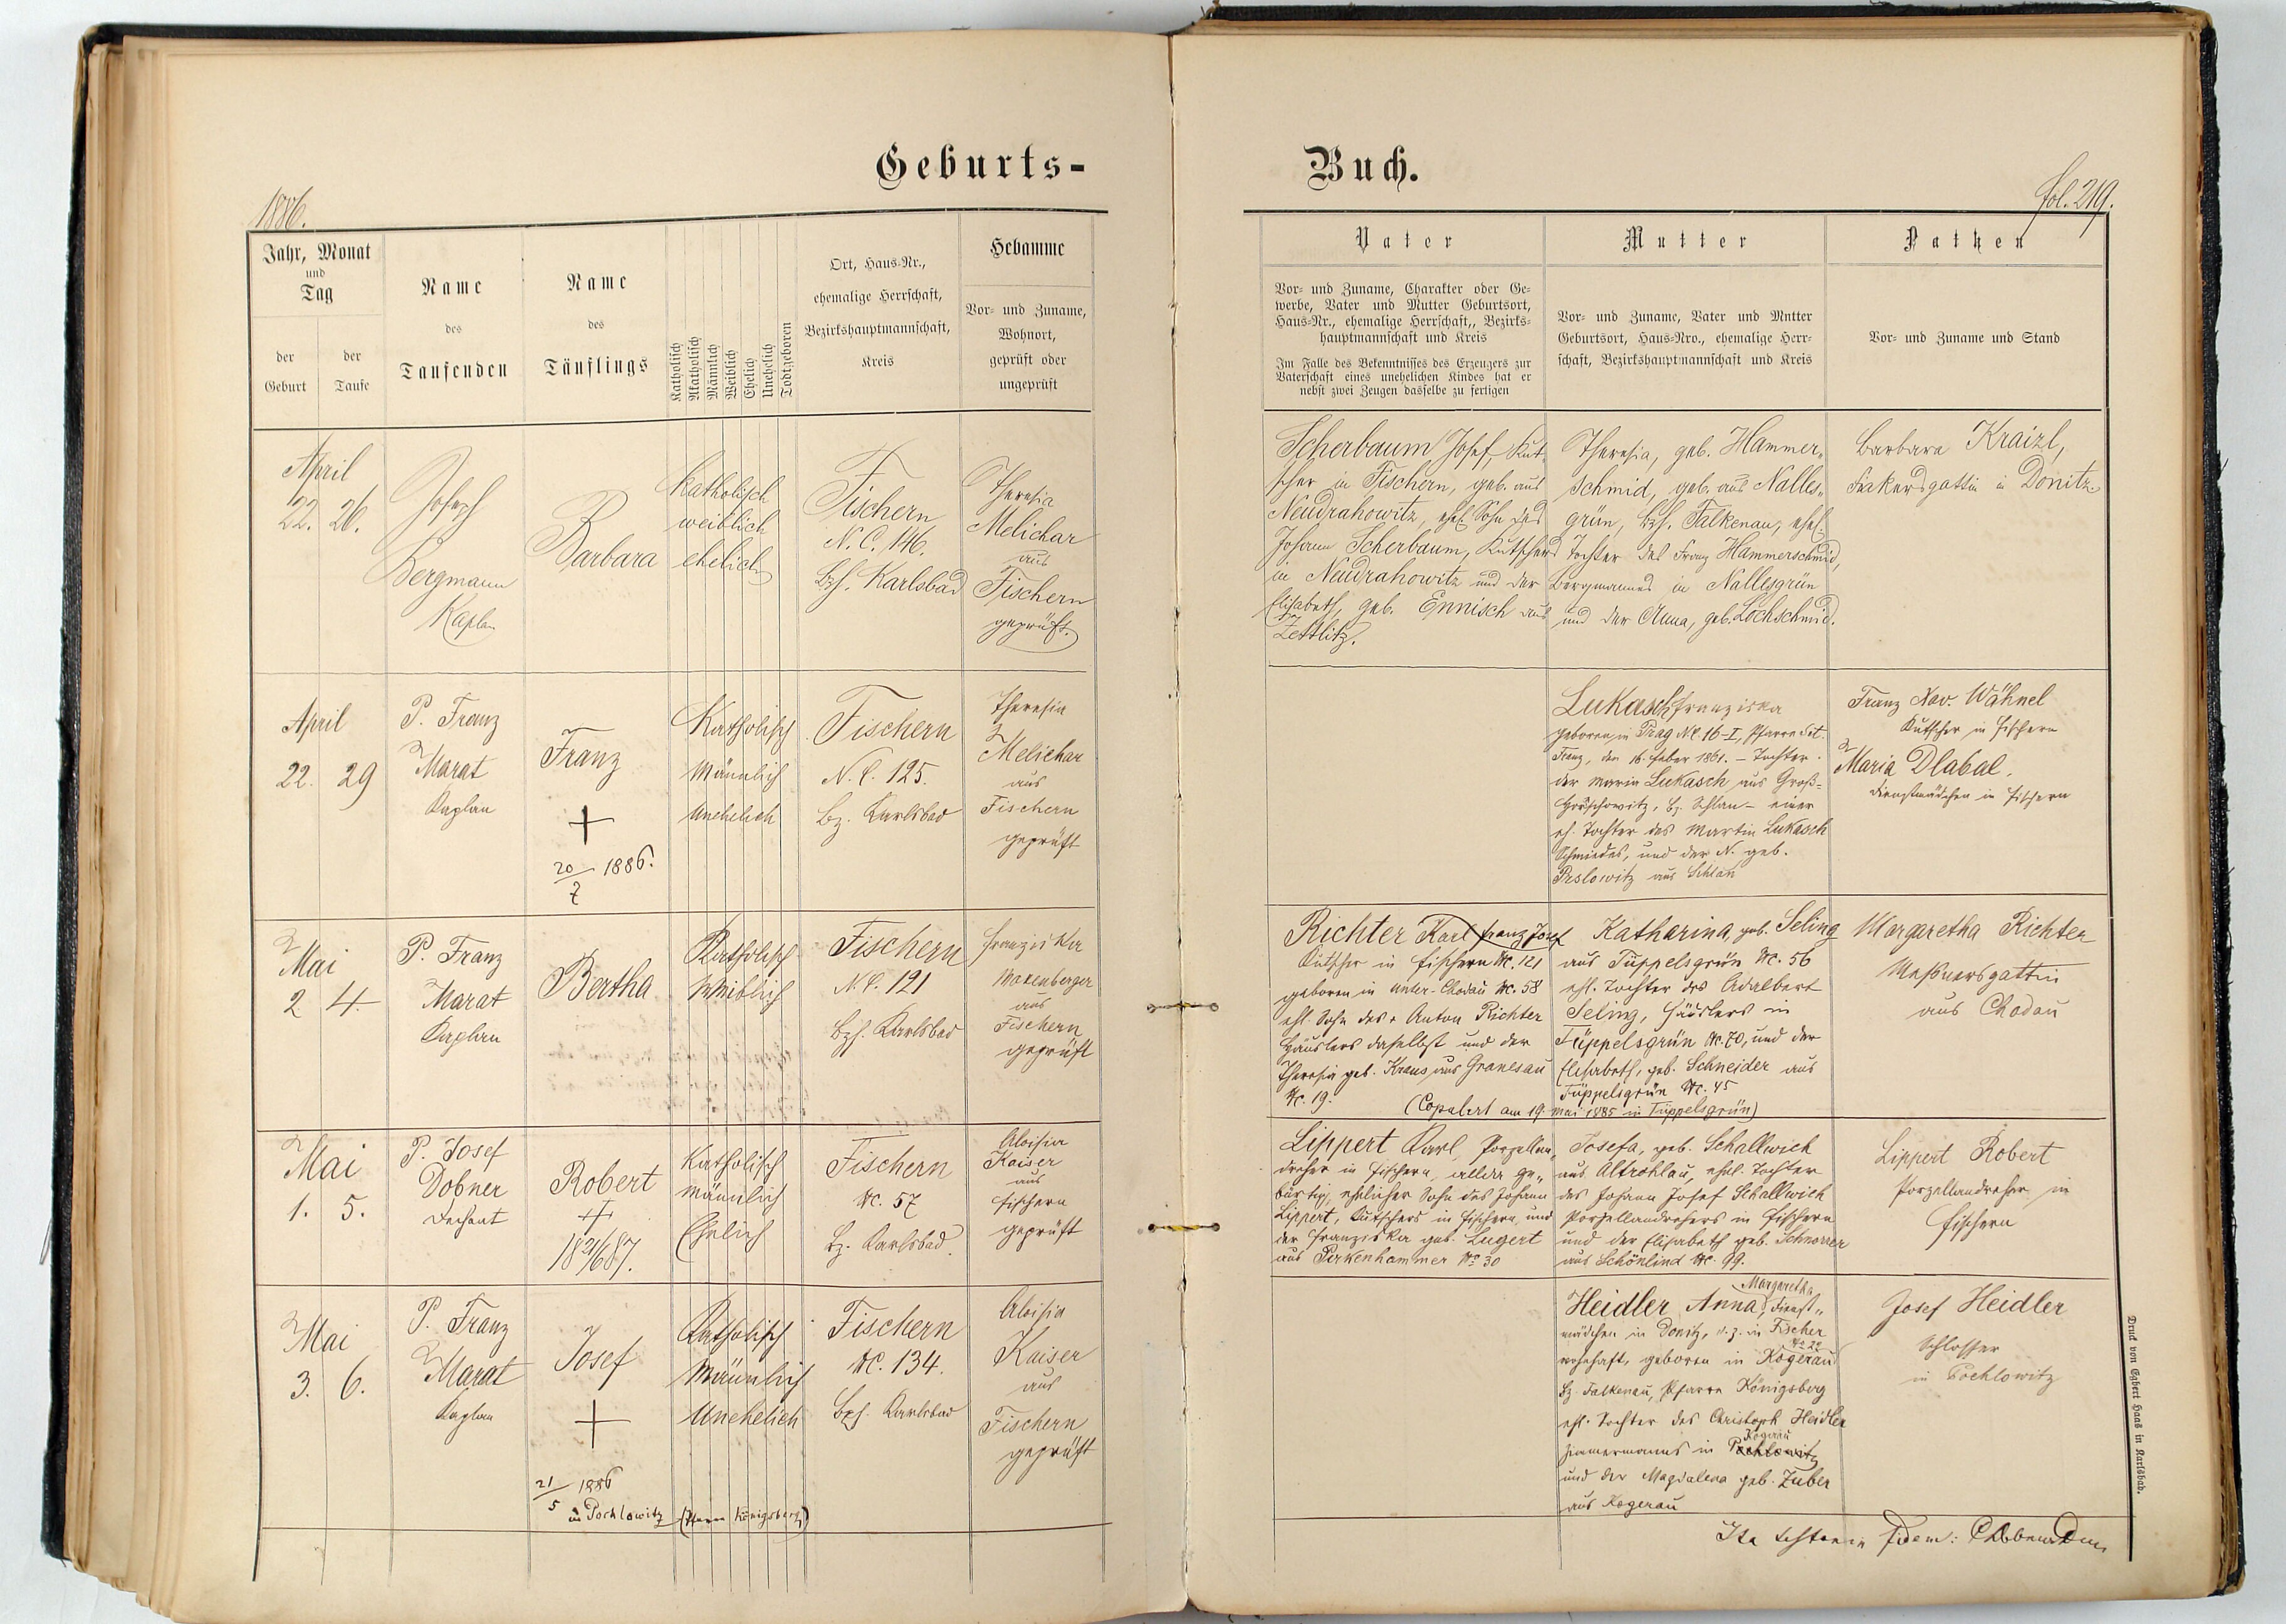 Geburts-
Buch.
1886.
fol. 219.
Jahr, Monat
und
Tag
der
Geburt
der
Taufe
Name
des
Taufenden
Name
des
Täuflings
Katholisch
Akatholisch
Männlich
Weiblich
Ehelich
Unehelich
Todtgeboren
Ort, Haus-Nr.,
ehemalige Herrschaft,
Bezirkshauptmannschaft,
Kreis
Hebamme
Vor- und Zuname,
Wohnort,
geprüft oder
ungeprüft
Vater
Vor- und Zuname, Charakter oder Ge-
werbe, Vater und Mutter Geburtsort,
Haus-Nr., ehemalige Herrschaft,, Bezirks-
hauptmannschaft und Kreis
Im Falle des Bekenntnisses des Erzeugers zur
Vaterschaft eines unehelichen Kindes hat er
nebst zwei Zeugen dasselbe zu fertigen
Mutter
Vor- und Zuname, Vater und Mutter
Geburtsort, Haus-Nro., ehemalige Herr-
schaft, Bezirkshauptmannschaft und Kreis
Pathen
Vor- und Zuname und Stand
April
22. 26.
Josef
Bergmann
Kaplan
Barbara
katholisch
weiblich
ehelich
Fischern
N. C. 146.
Bzh. Karlsbad
Theresia
Melichar
aus
Fischern
geprüft.
Scherbaum Josef, Kut-
scher in Fischern, geb. aus
Neudrahowitz, ehel. Sohn des
Johann Scherbaum, Kutschers
in Neudrahowitz und der
Elisabeth, geb. Ennisch aus
Zettlitz.
Theresia, geb. Hammer-
schmid, geb. aus Nalles-
grün, Bzh. Falkenau, ehel.
Tochter des Franz Hammerschmid,
Bergmannes in Nallesgrün
und der Anna, geb. Lochschmid.
Barbara Kraizl,
Fiakersgattin in Donitz.
April
22. 29
P. Franz
Marat
Kaplan
Franz
+
20/7 1886.
Katholisch
Männlich
Unehelich
Fischern
N. C. 125.
Bz. Karlsbad
Theresia
Melichar
aus
Fischern
geprüft
Lukasch Franziska
geboren in Prag NC. 16-I, Pfarre Set.
Franz, den 16. Feber 1861. – Tochter
der Maria Lukasch aus Groß-
Bz. Schlan – einer
eh. Tochter des Martin Lukasch
Schmiedes, und der N. geb.
aus Schlan
Franz Xav. Wähnel
Kutscher in Fischern
Maria Dlabal,
Dienstmädchen in Fischern
Mai
2 4.
P. Franz
Marat
Kaplan
Bertha
Katholisch
Weiblich
Fischern
N. C. 121
Bzh. Karlsbad
Franziska
Mokenberger
aus
Fischern
geprüft
Richter Karl Franz Josef
Kutscher in Fischern NC. 121
geboren in Unter-Chodau NC. 58
ehl. Sohn des + Anton Richter
Häuslers daselbst und der
Theresia geb. Kraus aus Granesau
NC. 19.
Katharina, geb. Seling
aus Tüppelsgrün NC. 56
ehl. Tochter des Adalbert
Seling, Häuslers in
Tüppelsgrün NC. 70, und der
Elisabeth, geb. Schneider aus
Tüppelsgrün NC. 45
(Copulirt am 19. Mai 1885 in Tüppelsgrün)
Margaretha Richter
Meßnersgattin
aus Chodau
Mai
1. 5.
P. Josef
Dobner
Dechant
Robert
+
18 21/6 87.
Katholisch
Männlich
Ehelich
Fischern
NC. 57
Bz. Karlsbad.
Aloisia
Kaiser
aus
Fischern
geprüft
Lippert Karl, Porzellan-
dreher in Fischern, allda ge-
bürtig, ehelicher Sohn des Johann
Lippert, Kutschers in Fischern, und
der Franziska geb. Lugert
aus Pirkenhammer No 30
Josefa, geb. Schallwich
aus Altrohlau, ehl. Tochter
des Johann Josef Schallwich
Porzellandrehers in Fischern
und der Elisabeth geb. Schnorrer
aus Schönlind NC. 99.
Lippert Robert
Porzellandreher in
Fischern
Mai
3. 6.
P. Franz
Marat
Kaplan
Josef
+
21/5 1886
in Pochlowitz (Pfarre Königsberg)
Katholisch
Männlich
Unehelich
Fischern
NC. 134.
Bzh. Karlsbad
Aloisia
Kaiser
aus
Fischern
geprüft
Margaretha
Heidler Anna, Dienst-
mädchen in Donitz, d. z. in Fischer
No 20
wohnhaft, geboren in Kogerau
Bz. Falkenau, Pfarre Königsberg
ehl. Tochter des Christoph Heidler
Kogerau
Zimmermanns in Pochlowitz
und der Magdalena geb. Zuber
aus Kogerau
Josef Heidler
Schlosser
in Pochlowitz
Ita testor in fidem:
Druck von Egbert Haas in Karlsbad.